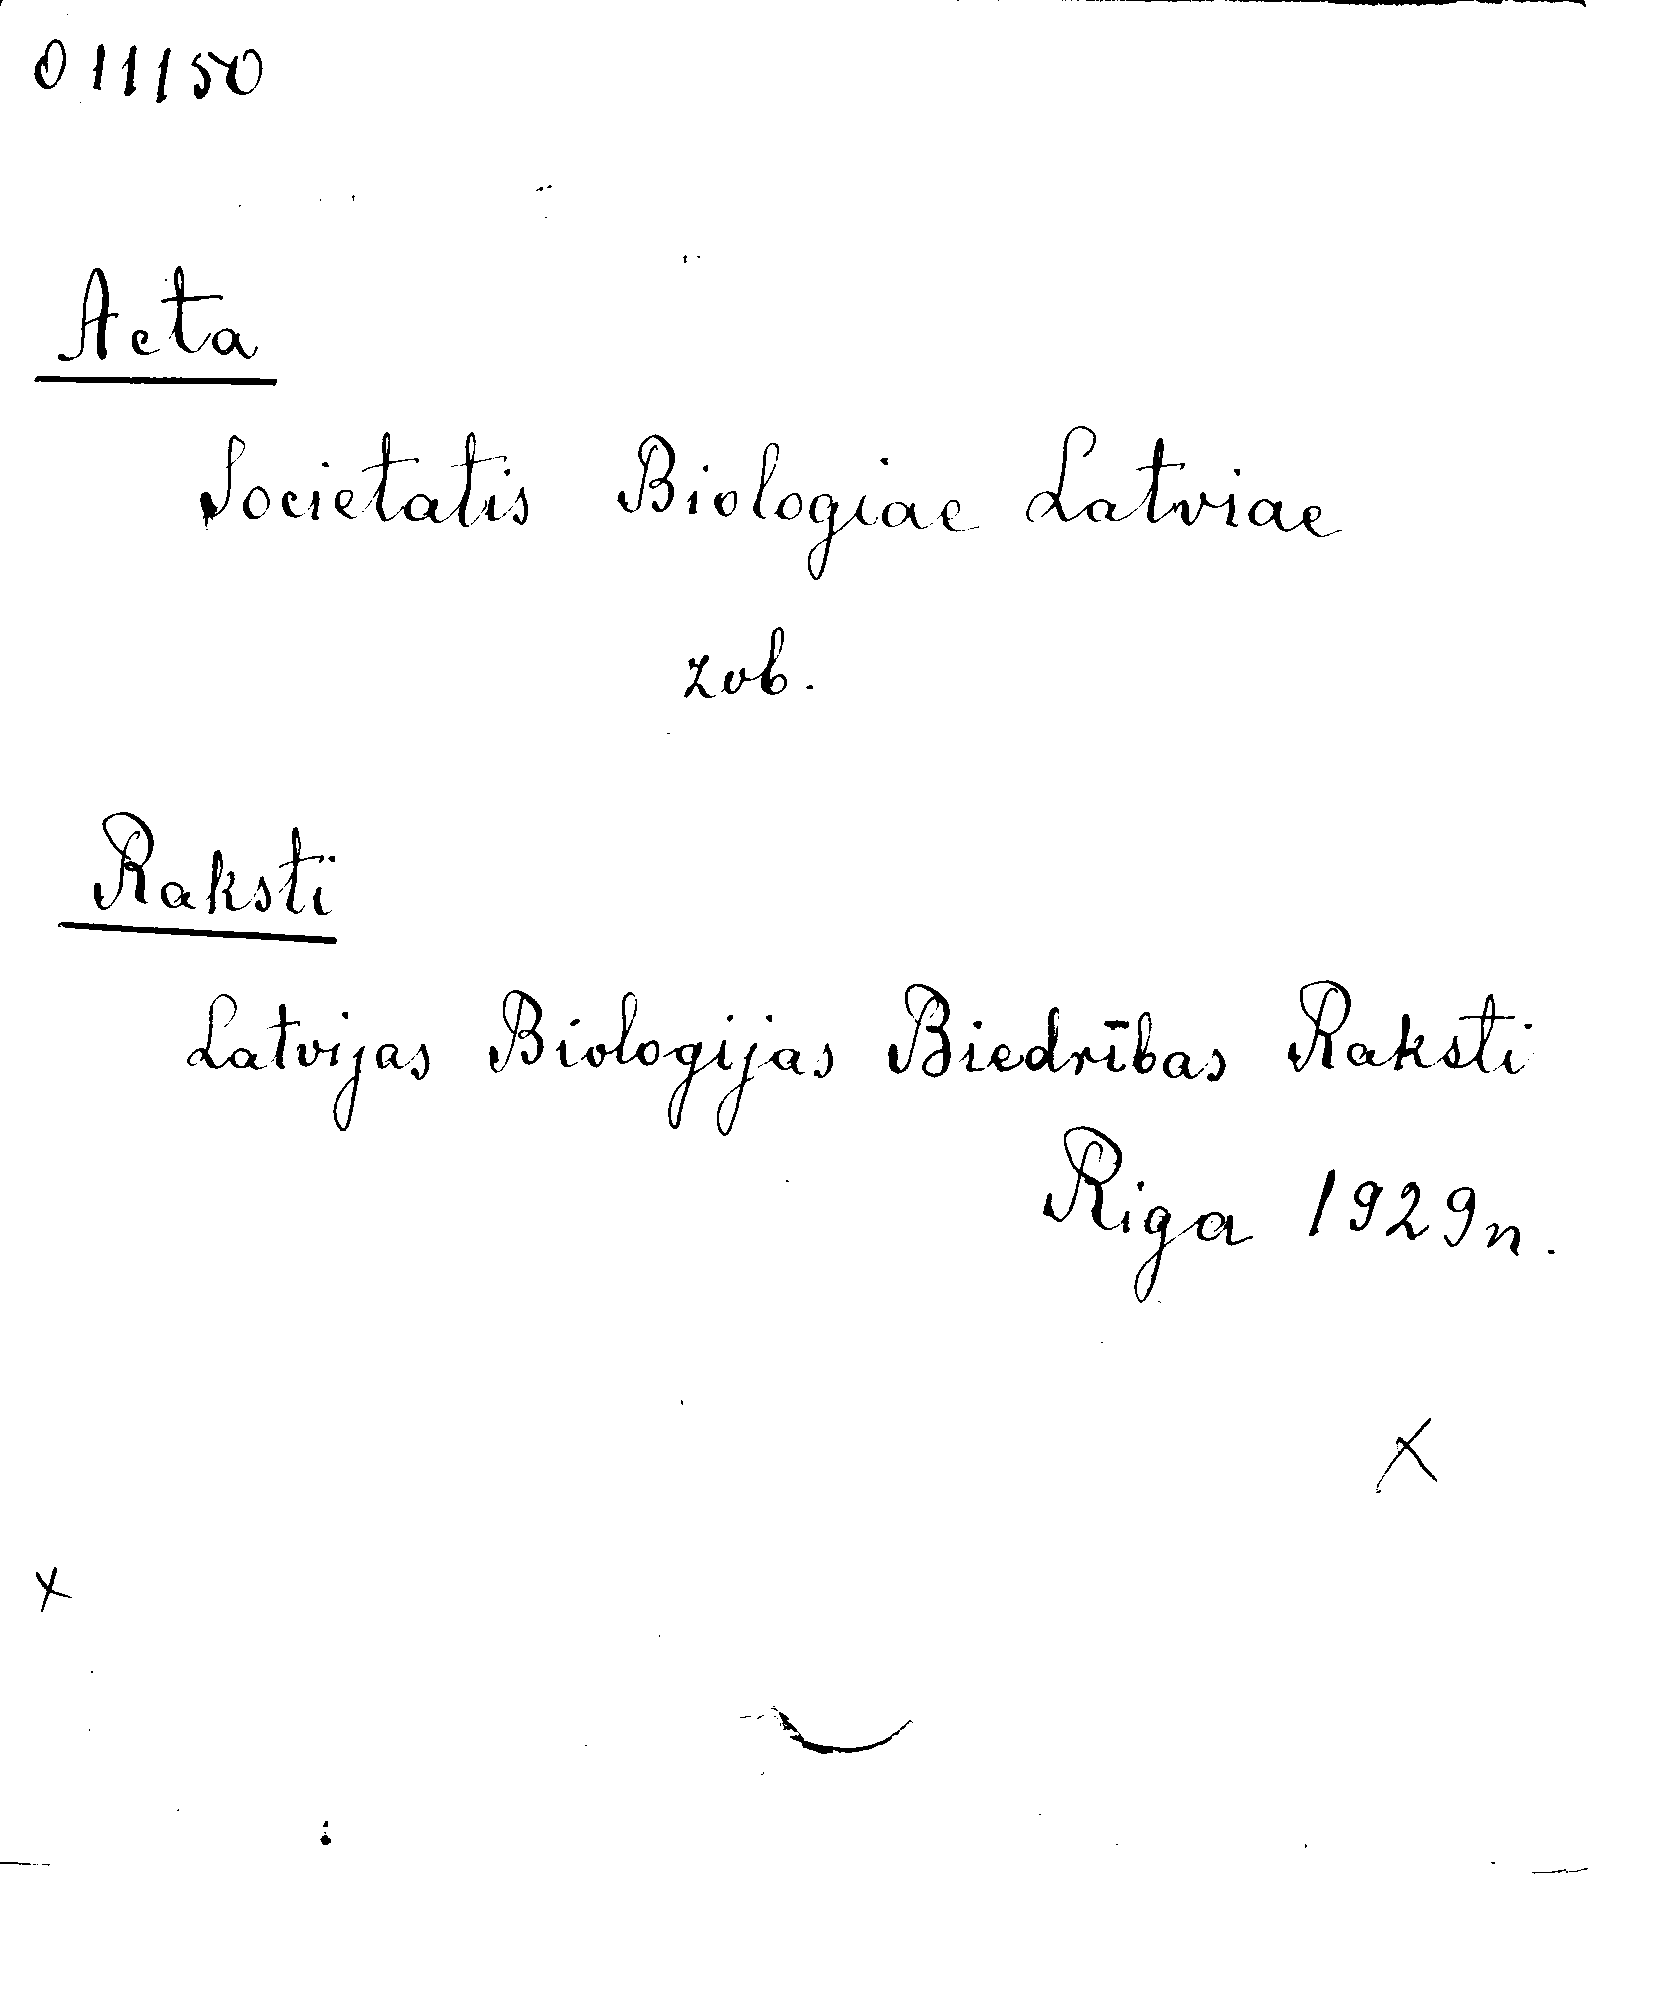 011150
Acta
Societatis Biologiae Latviae
zob.
Raksti
Latvijas Biologijas Biedrības Raksti
Riga 1929n.
x
x